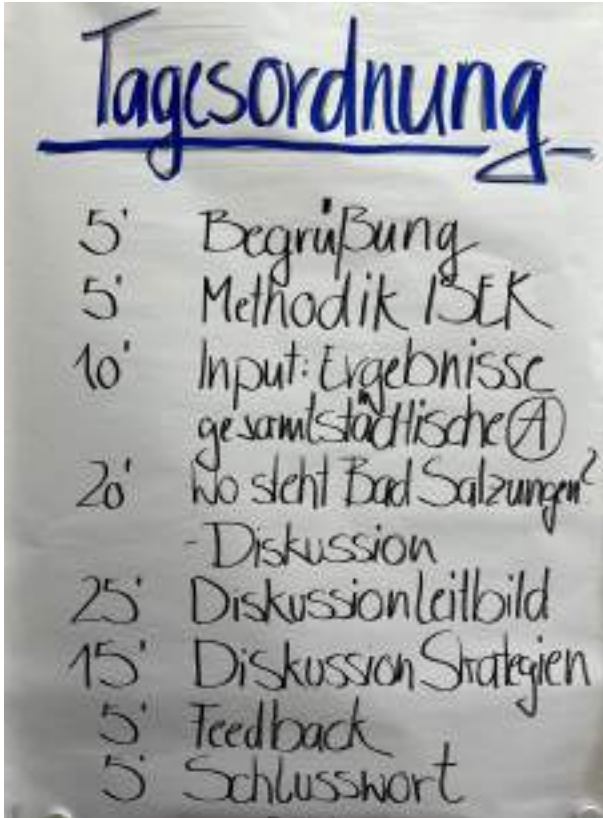 Tagesordnung
5' Begrüßung
5' Methodik ISEK
10' Input: Ergebnisse
gesamtstädtische Ⓐ
20' Wo steht Bad Salzungen?
- Diskussion
25' Diskussion Leitbild
15' Diskussion Strategien
5' Feedback
5' Schlusswort